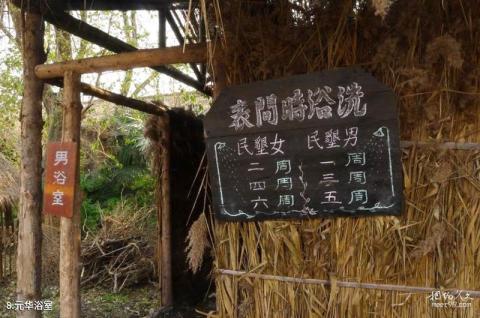 洗浴時間表
男墾民 女墾民
周一 周二
周三 周四
周五 周六
男浴室
8.元华浴室